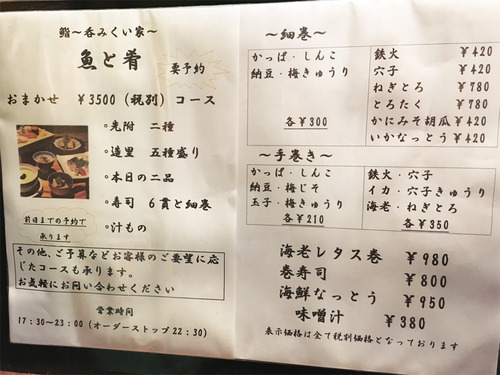 鮨～呑みくい家～
魚と肴
要予約
おまかせ ￥3500（税別）コース
◦先附 二種
◦造里 五種盛り
◦本日の二品
◦寿司 6貫と細巻
◦汁もの
前日までの予約で
承ります
その他、ご予算などお客様のご要望に応
じたコースも承ります。
お気軽にお問い合わせください
営業時間
17：30～23：00（オーダーストップ22：30）
～細巻～
かっぱ・しんこ
納豆・梅きゅうり
各￥300
鉄火 ￥420
穴子 ￥420
ねぎとろ ￥780
とろたく ￥780
かにみそ胡瓜￥420
いかなっとう￥420
～手巻き～
かっぱ・しんこ
納豆・梅じそ
玉子・梅きゅうり
各￥210
鉄火・穴子
イカ・穴子きゅうり
海老・ねぎとろ
各￥350
海老レタス巻 ￥980
巻寿司 ￥800
海鮮なっとう ￥950
味噌汁 ￥380
表示価格は全て税別価格となっております